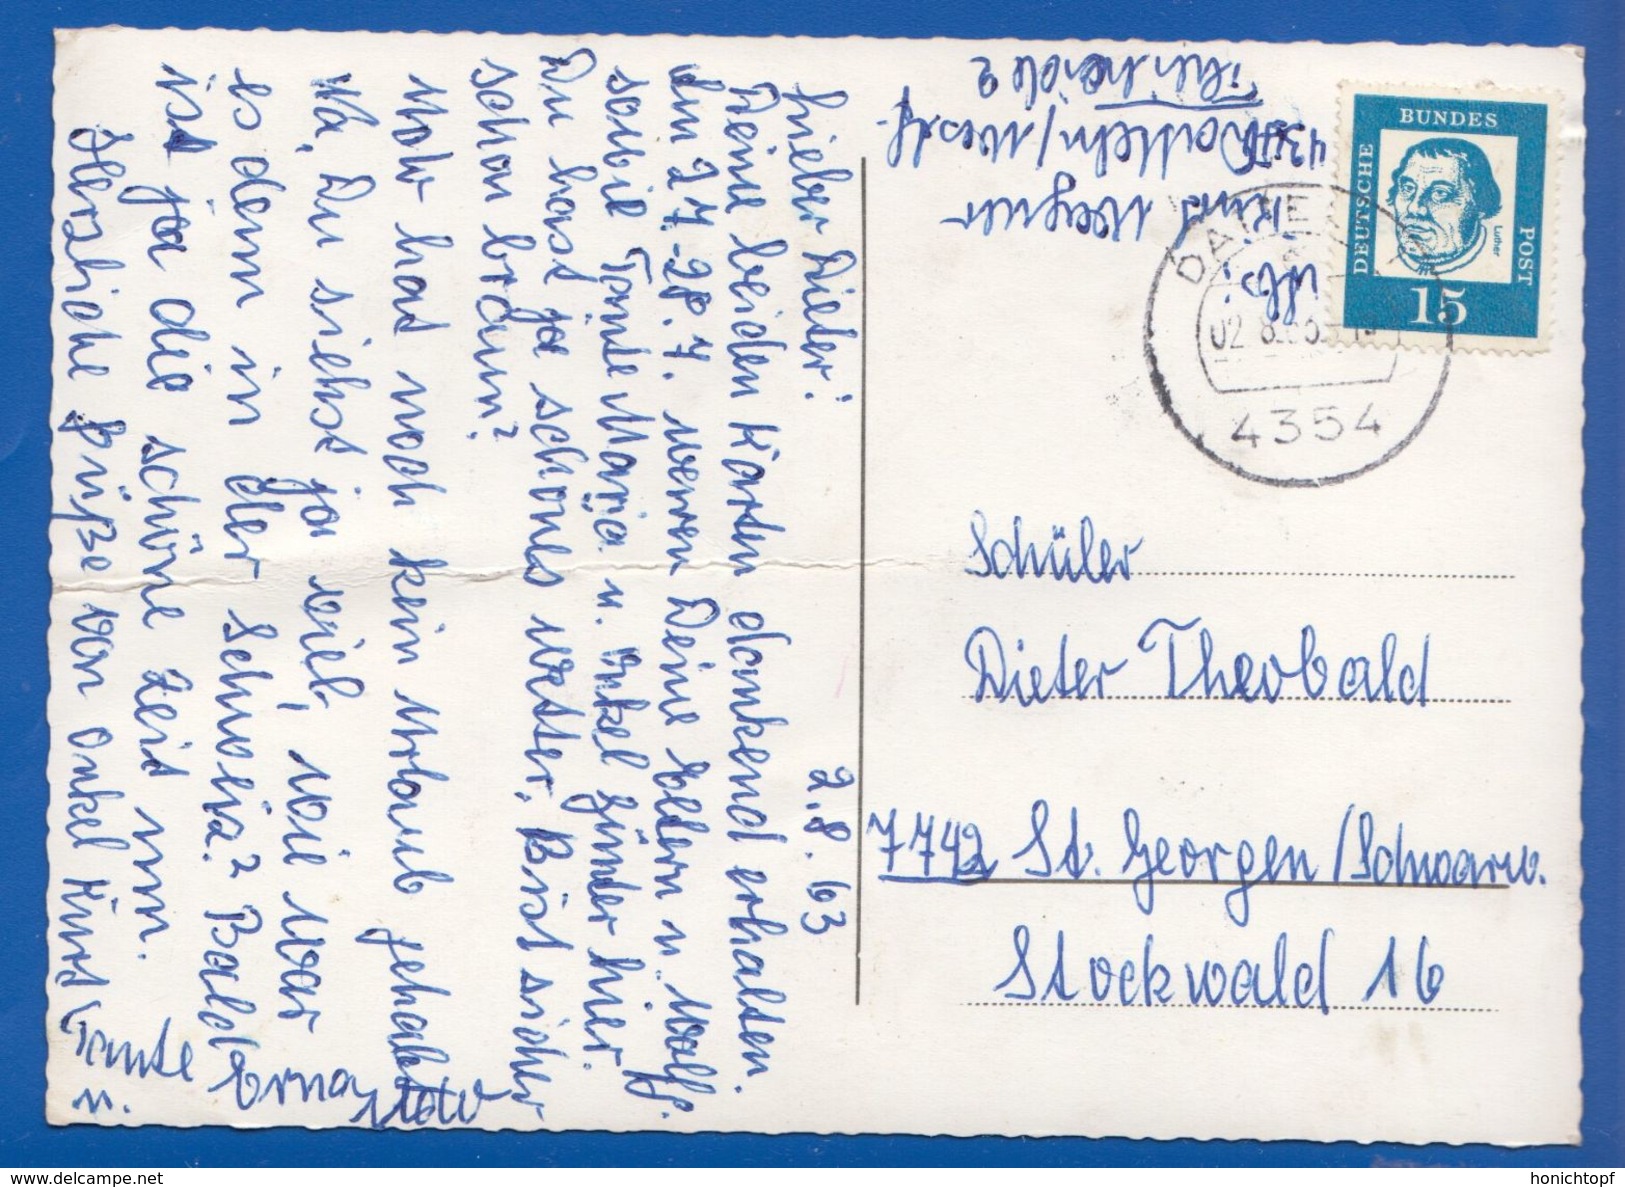 2.8.63
Lieber Dieter!
Deine beiden Karten dankend erhalten.
Am 27-28.7. waren Deine Eltern u. Wolfg.
sowie Tante Marija u. Onkel Günter hier.
Du hast ja schönes Wetter. Bist sicher
schon braun?
Motv hat noch kein Urlaub gehabt
Na, Du siehst ja viel, wie war
es denn in der Schweiz? Bald
ist ja die schöne Zeit rum.
Herzliche Grüße von Onkel Kurt
u. Tante Erna
Motv
Abs:
Kurt Wegner
4354 Datteln/Westf.
2
BUNDES
DEUTSCHE
POST
Luther
15
DATTELN
02.8.63
4354
Schüler
Dieter Theobald
7742 St. Georgen/Schwarw.
Stockwald 16
www.delcampe.net
honichtopf